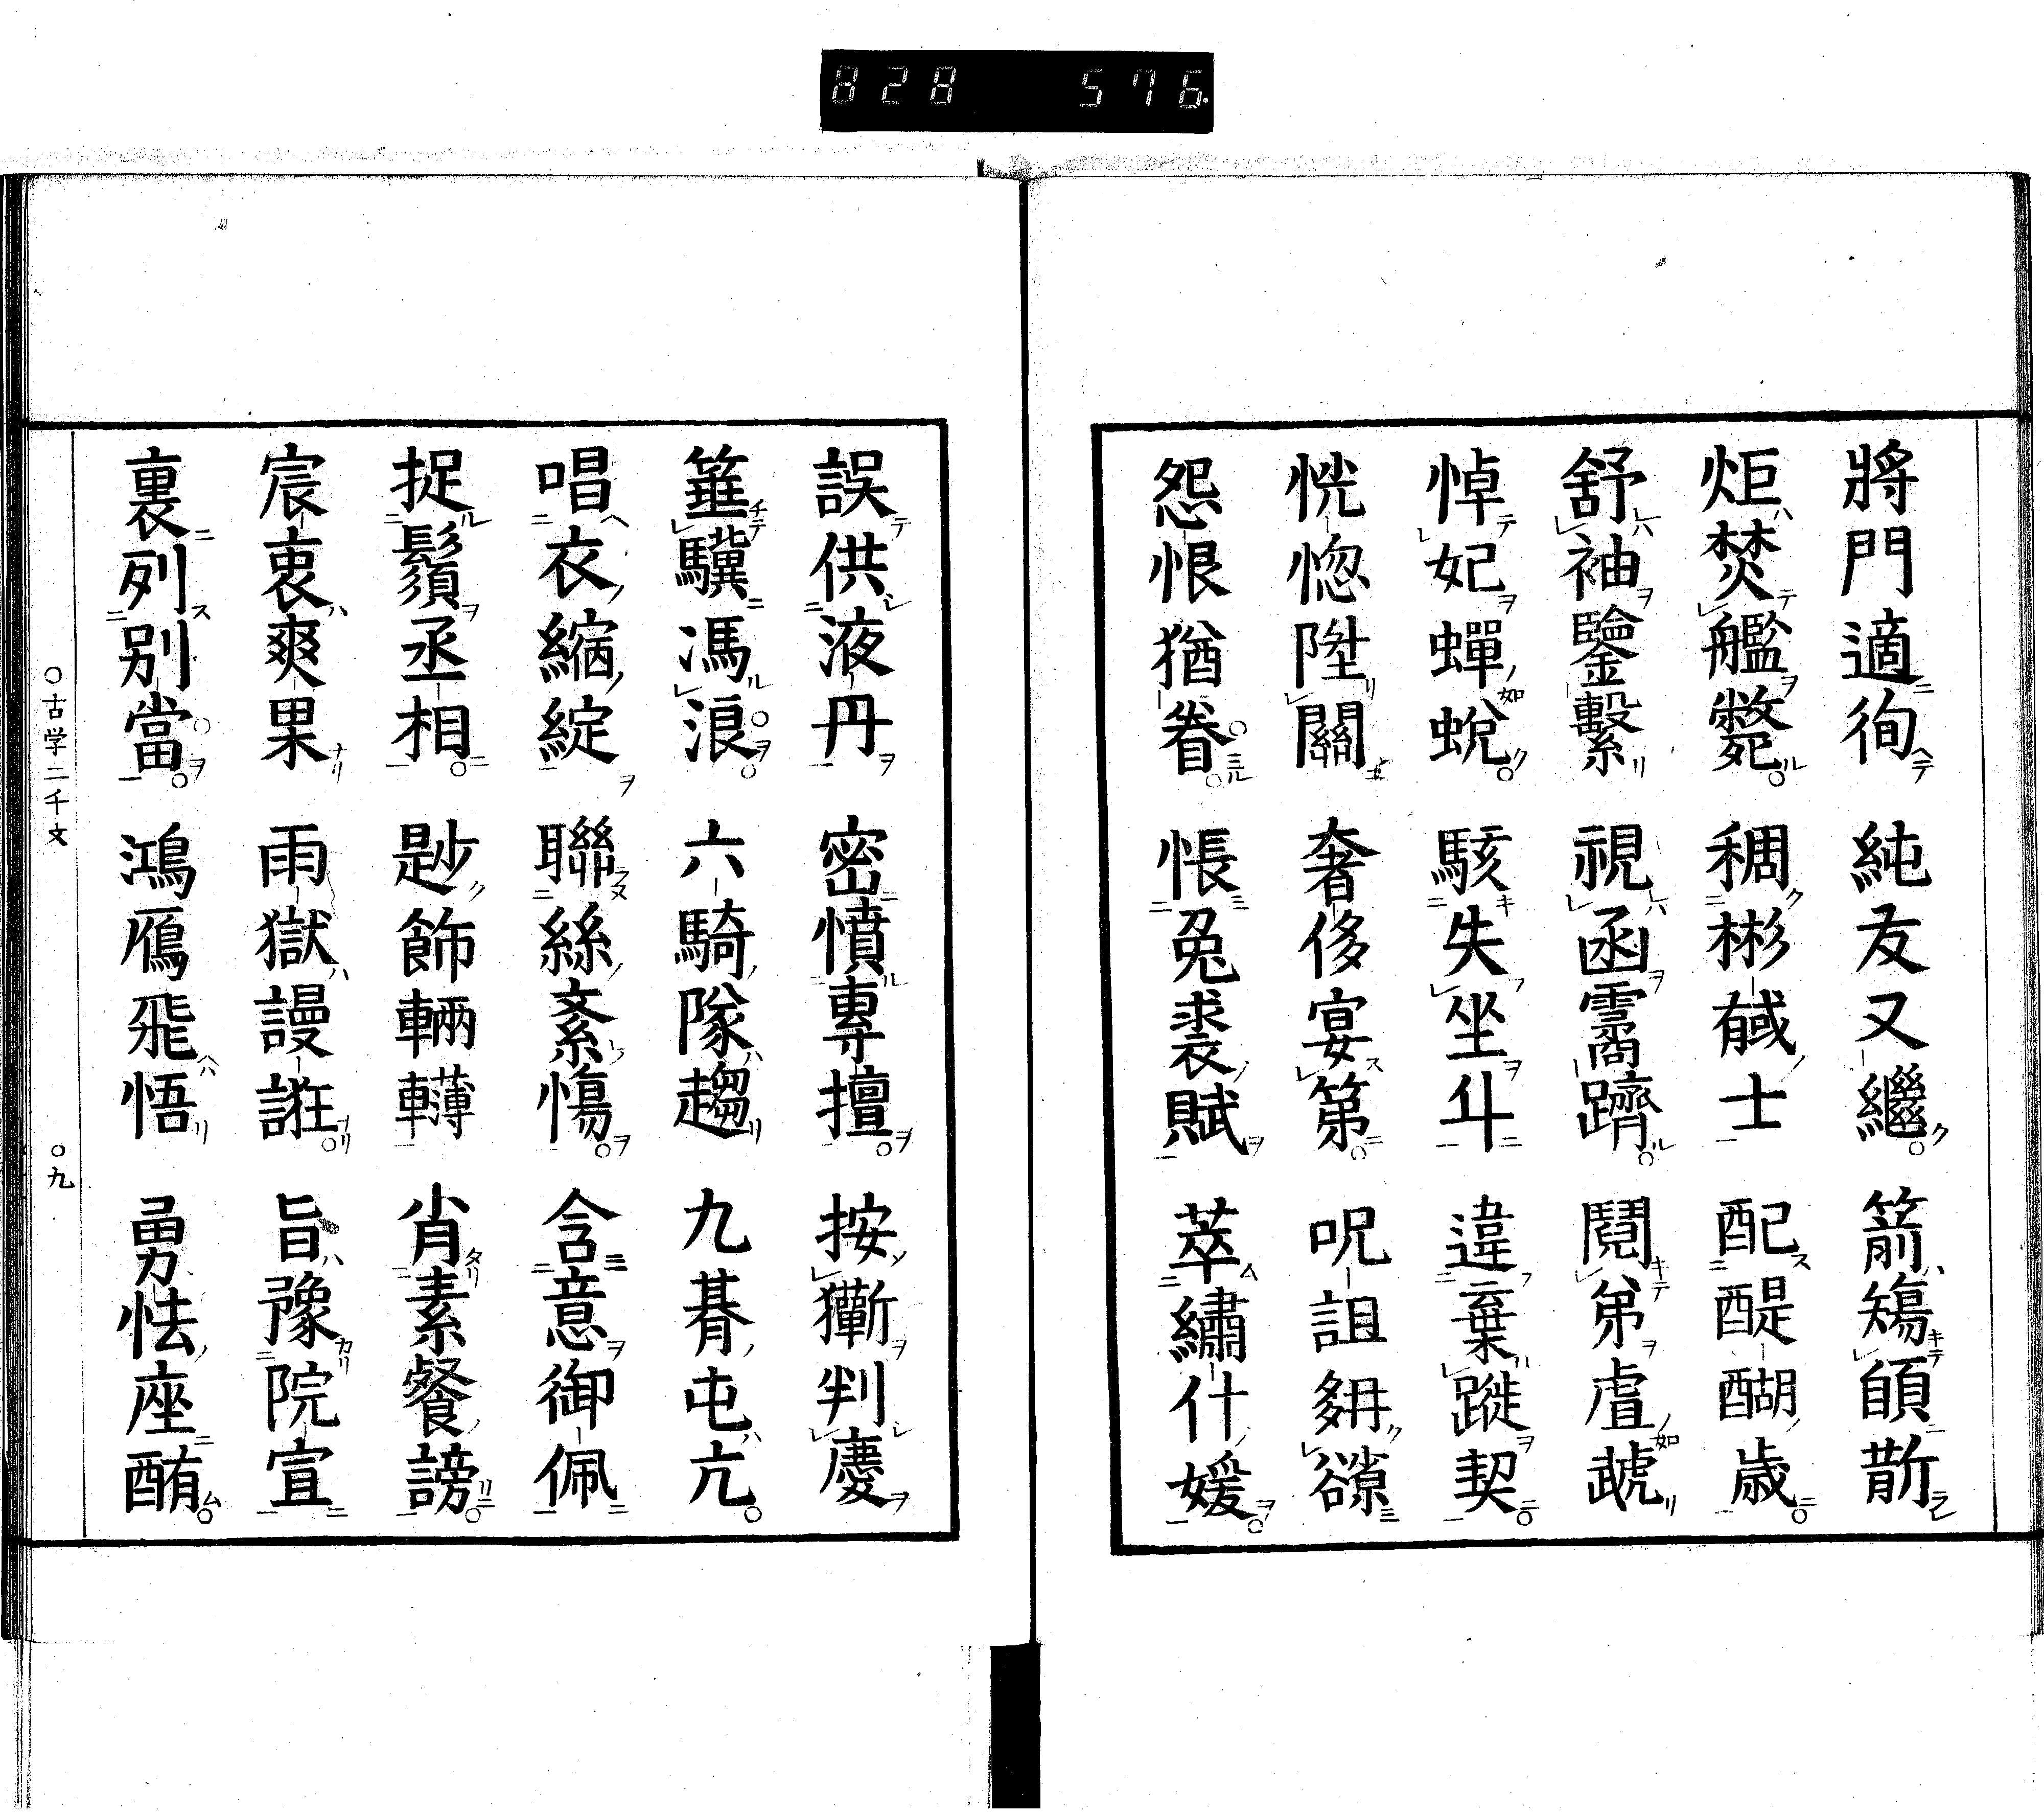 828 576
將門適徇 純友又繼 箭煬䪿斮
炬焚艦斃 稠彬彧士 配醍醐歳
舒袖鑒繫 視函霱躋 鬩弟虐虣
悼妃蟬蛻 駭失坐斗 違棄蹤契
恍惚陞關 奢侈宴第 呪詛
怨恨猶眷 悵兎裘賦 萃繡什媛
誤供液丹 密憤專擅 按獮判慶
驥馮浪 六騎隊趨 九朞屯亢
唱衣縮綻 聯絲紊慯 含意御佩
捉鬚丞相 尟飾輛 肖素餐謗
宸衷爽果 雨獄謾誑 旨豫院宣
裏列別當 鴻鴈飛悟 勇怯座酭
古学二千文 九